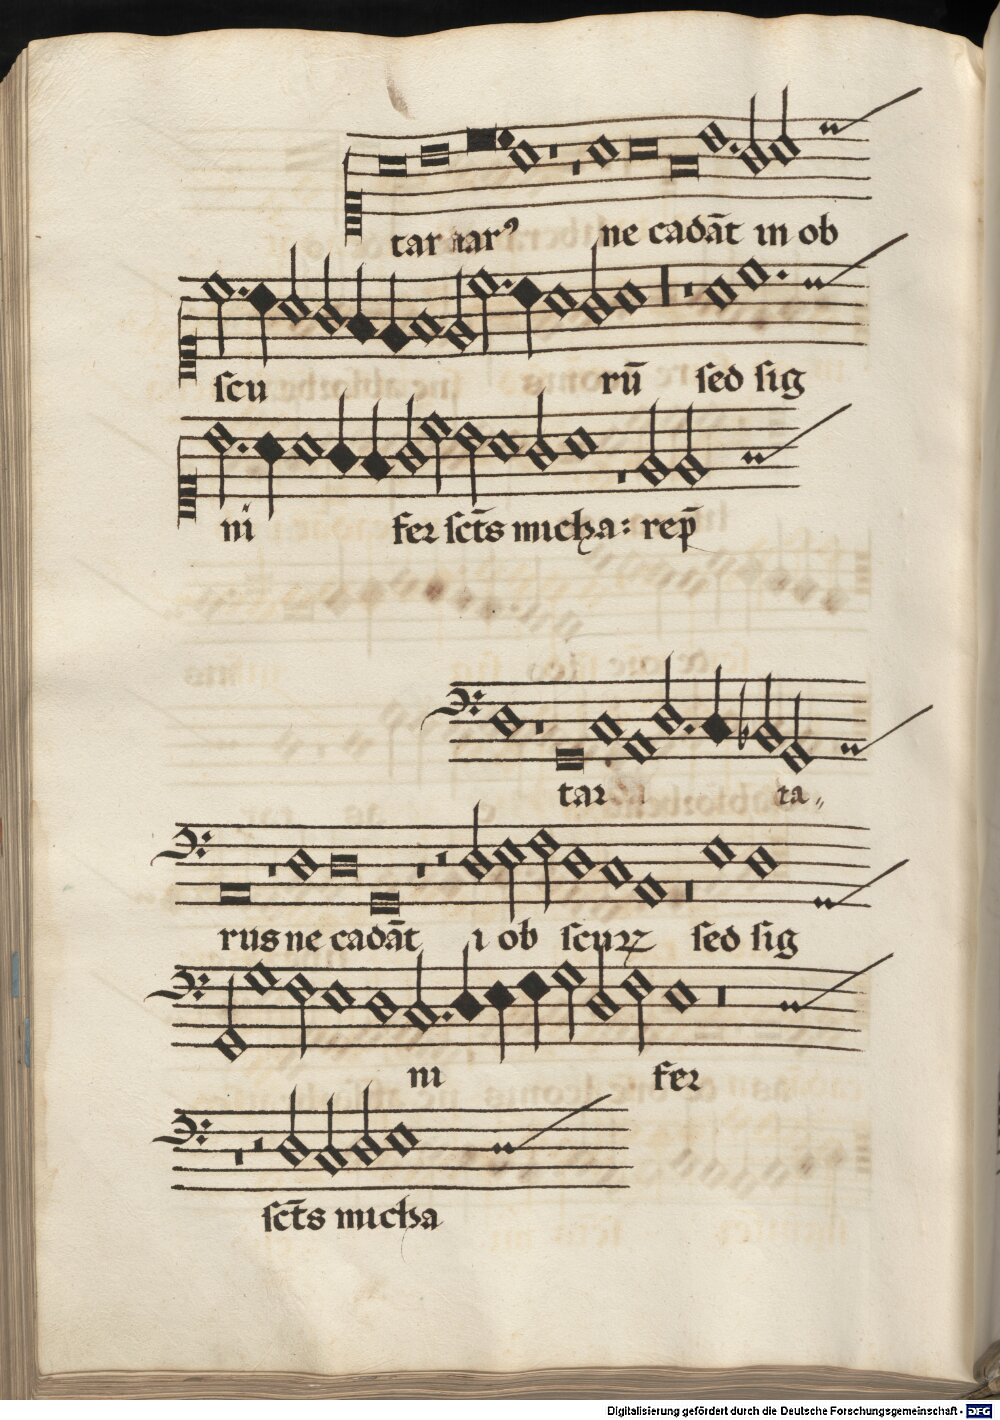 tar tarꝰ ne cadāt in ob
scu rū sed sig
ni fer sct̄s micha : rep̄
tar ta
rus ne cadāt i ob scurꝝ sed sig
ni fer
sct̄s micha
Digitalisierung gefördert durch die Deutsche Forschungsgemeinschaft - DFG